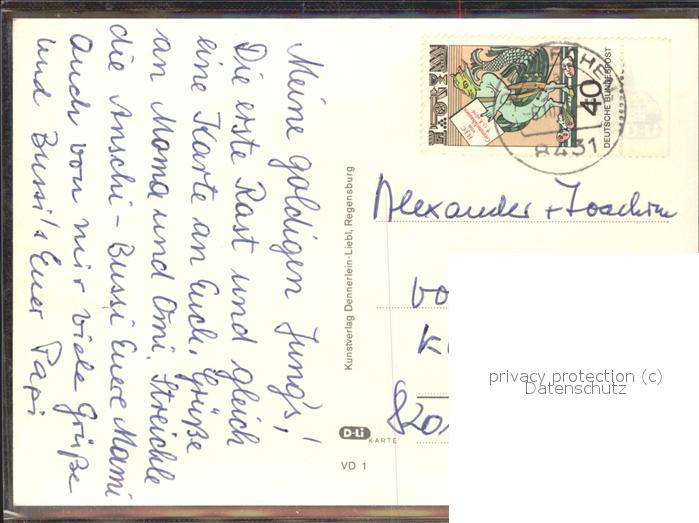 Meine goldigen Jung's!
Die erste Rast und gleich
eine Karte an Euch. Grüße
an Mama und Omi. Streichle
die Anschi - Bussi Euere Mami
Auch von mir viele Grüße
und Bussi's Euer Papi
Kunstverlag Dennerlein-Liebl, Regensburg
D-Li
KARTE
VD 1
40
DEUTSCHE BUNDESPOST
8431
Alexander + Joachim
privacy protection (c)
Datenschutz